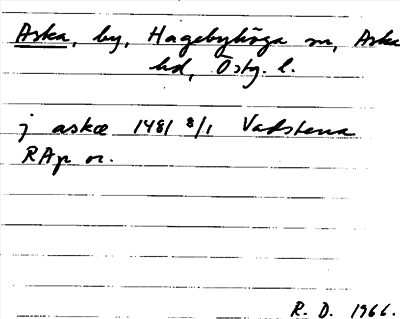 Aska, by, Hagebyhöga sn, Aska
hd, Östg. l.
j askæ 1481 8/1 Vadstena
RAp or.
R. D. 1966.